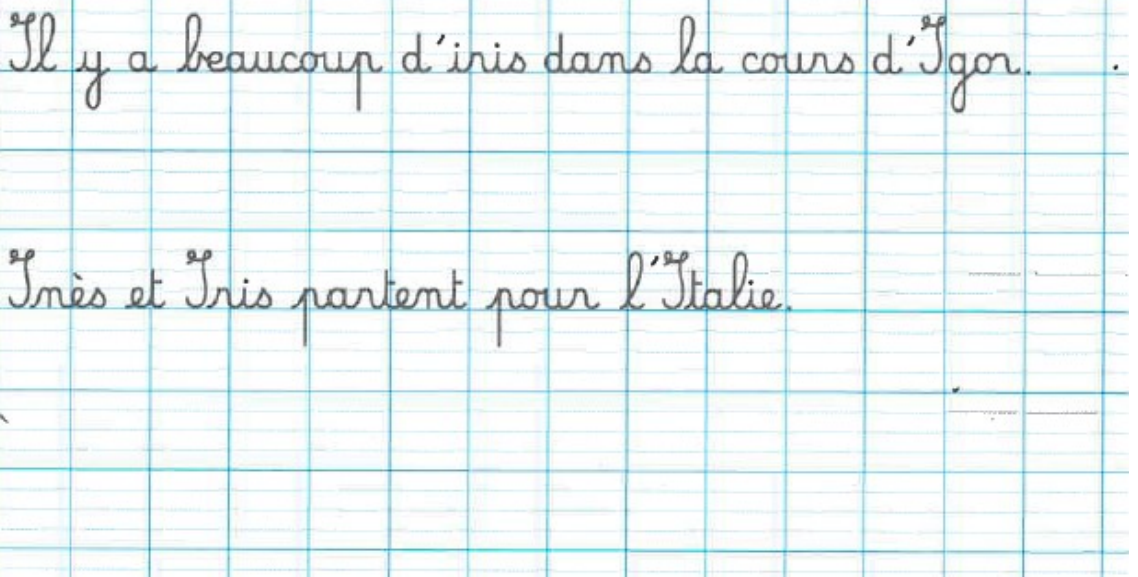 Il y a beaucoup d'iris dans la cours d'Igor.
Inès et Iris partent pour l'Italie.